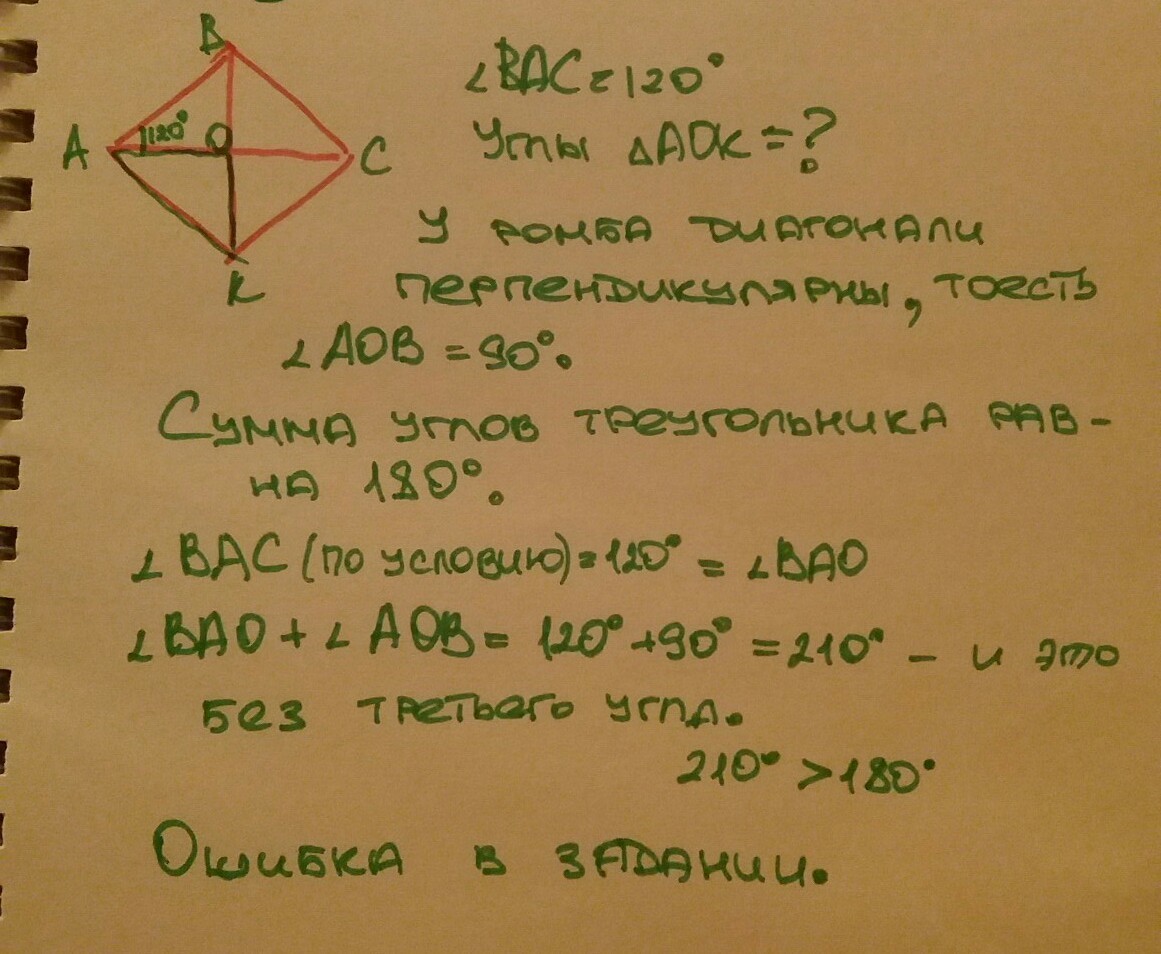 B
A 120° O C
K
∠BAC = 120°
Углы △AOK = ?
У РОМБА ДИАГОНАЛИ
ПЕРПЕНДИКУЛЯРНЫ, ТОЕСТЬ
∠AOB = 90°.
СУММА УГЛОВ ТРЕУГОЛЬНИКА РАВ-
НА 180°.
∠BAC (ПО УСЛОВИЮ) = 120° = ∠BAO
∠BAO + ∠AOB = 120° + 90° = 210° - И ЭТО
БЕЗ ТРЕТЬЕГО УГЛА.
210° > 180°
ОШИБКА В ЗАДАНИИ.